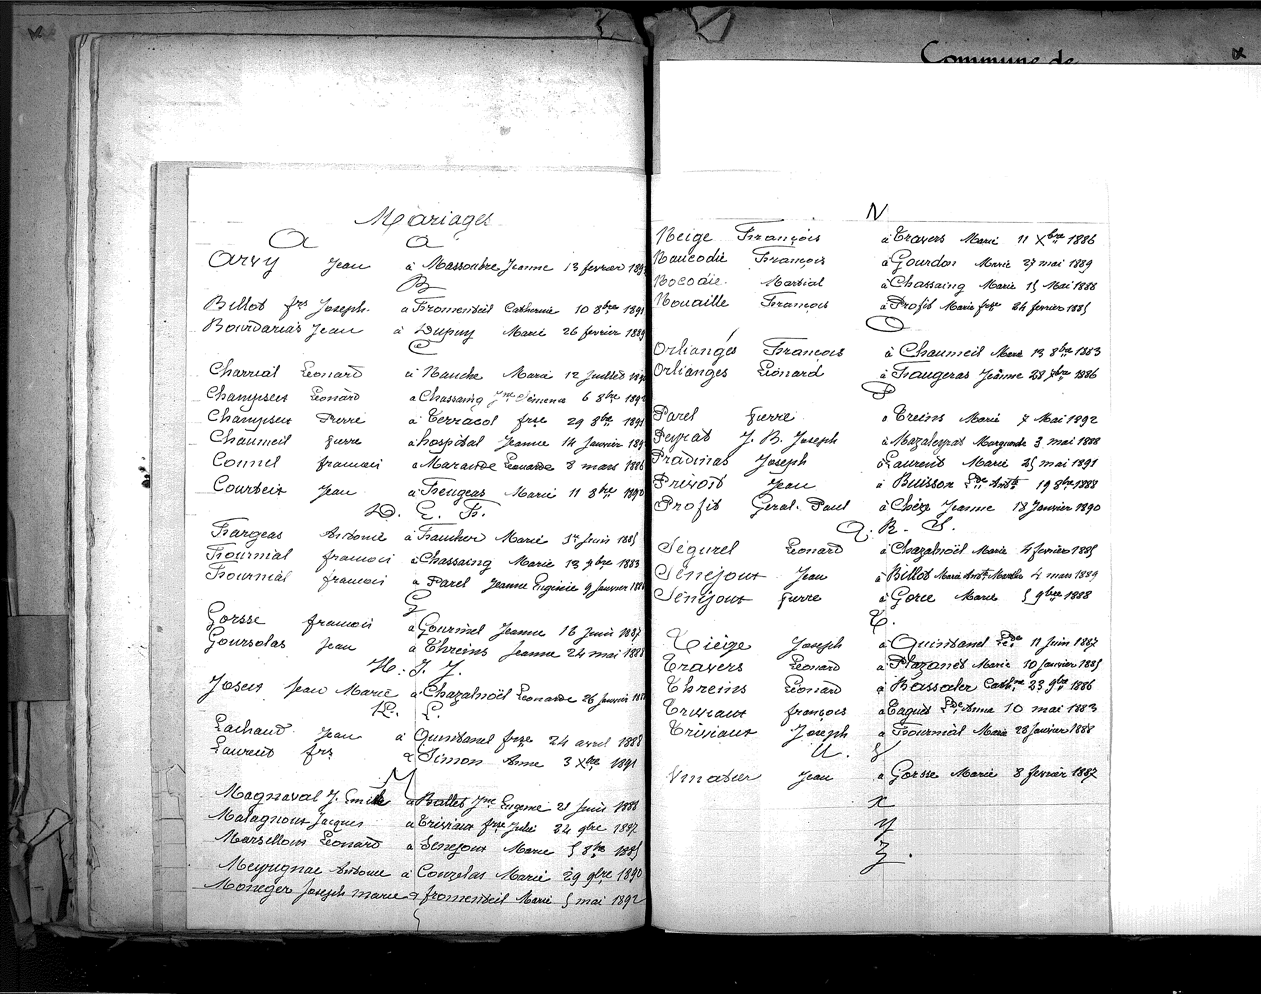 Commune de
Mariages
A A
Arvy Jean à Massoubre Jeanne 13 fevrier 189
B
Billot frs Joseph. à Fromenteil Catherine 10 8bre 1891
Bourdarias Jean à Dupuy Marie 26 fevrier 1889
C
Charrial Léonard à Nauche Marie 12 Juillet
Champseix Léonard à Chassaing Jne 6 8bre 189
Champseix Pierre à Terracol frse 29 8bre 1891
Chaumeil pierre à hospital Jeanne 14 Janvier 189
Connel francois à Marande Léonarde 8 mars 1886
Courteix Jean à Feugeas Marie 11 8bre 1890
D. E. F.
Fargeas Antoine à Faucher Marie 1er Juin 1885
Fournial francois à Chassaing Marie 13 9bre 1883
Fournial francois à Parel Jeanne Eugénie 9 Janvier 188
G
Gorsse francois à Gourinel Jeanne 16 Juin 1887
Goursolas Jean à Threins Jeanne 24 mai 1888
H. I. J.
Joseix Jean Marie à Chazalnoël Léonarde 26 Janvier 18
K. L.
Lachaud Jean à Quintanel frse 24 avril 1888
Laurent frs à Simon Anne 3 Xbre 1891
M
Magnaval J. Emile à Ballet Jne Eugenie 21 Juin 1888
Malagnoux Jacques à Triviaux frse Julie 24 9bre 1887
Marsilloux Léonard à Senejoux Marie 5 8bre 1885
Meyrignac Antoine à Couzelas Marie 29 9bre 1890
Moneger Joseph marie à fromenteil Marie 5 mai 1892
N
Neige François à Travers Marie 11 Xbre 1886
Naucodie François à Gourdon Marie 27 mai 1889
Nocodie Martial à Chassaing Marie 15 Mai 1888
Nouaille François à Profit Marie frse 24 fevrier 1885
O
Orlianges François à Chaumeil Marie 13 8bre 1883
Orlianges Léonard à Faugeras Jeanne 28 7bre 1886
P
Parel pierre à Treins Marie 7 Mai 1892
Peyrat J. B. Joseph à Mazaleyrat Marguerite 3 mai 1888
Pradinas Joseph à Laurent Marie 25 mai 1891
Prévost Jean à Buisson Lde Antte 19 8bre 1888
Profit Geral. Paul à Chèze Jeanne 18 Janvier 1890
Q. R. S.
Ségurel Léonard à Chazalnoël Marie 4 fevrier 1885
Sénéjoux Jean à Billot Marie Antte 4 mars 1889
Sénéjoux pierre à Gorce Marie 5 9bre 1888
T.
Tieige Joseph à Quintanel Lde 11 Juin 1887
Travers Léonard à Plazanet Marie 10 Janvier 1885
Threins Léonard à Bassaler Cathne 23 9bre 1886
Triviaux françois à Eagues Lde Anne 10 mai 1883
Triviaux Joseph à Fournial Marie 28 Janvier 1888
U. V
Vmatier Jean à Gorsse Marie 8 fevrier 1887
x
y
Z.